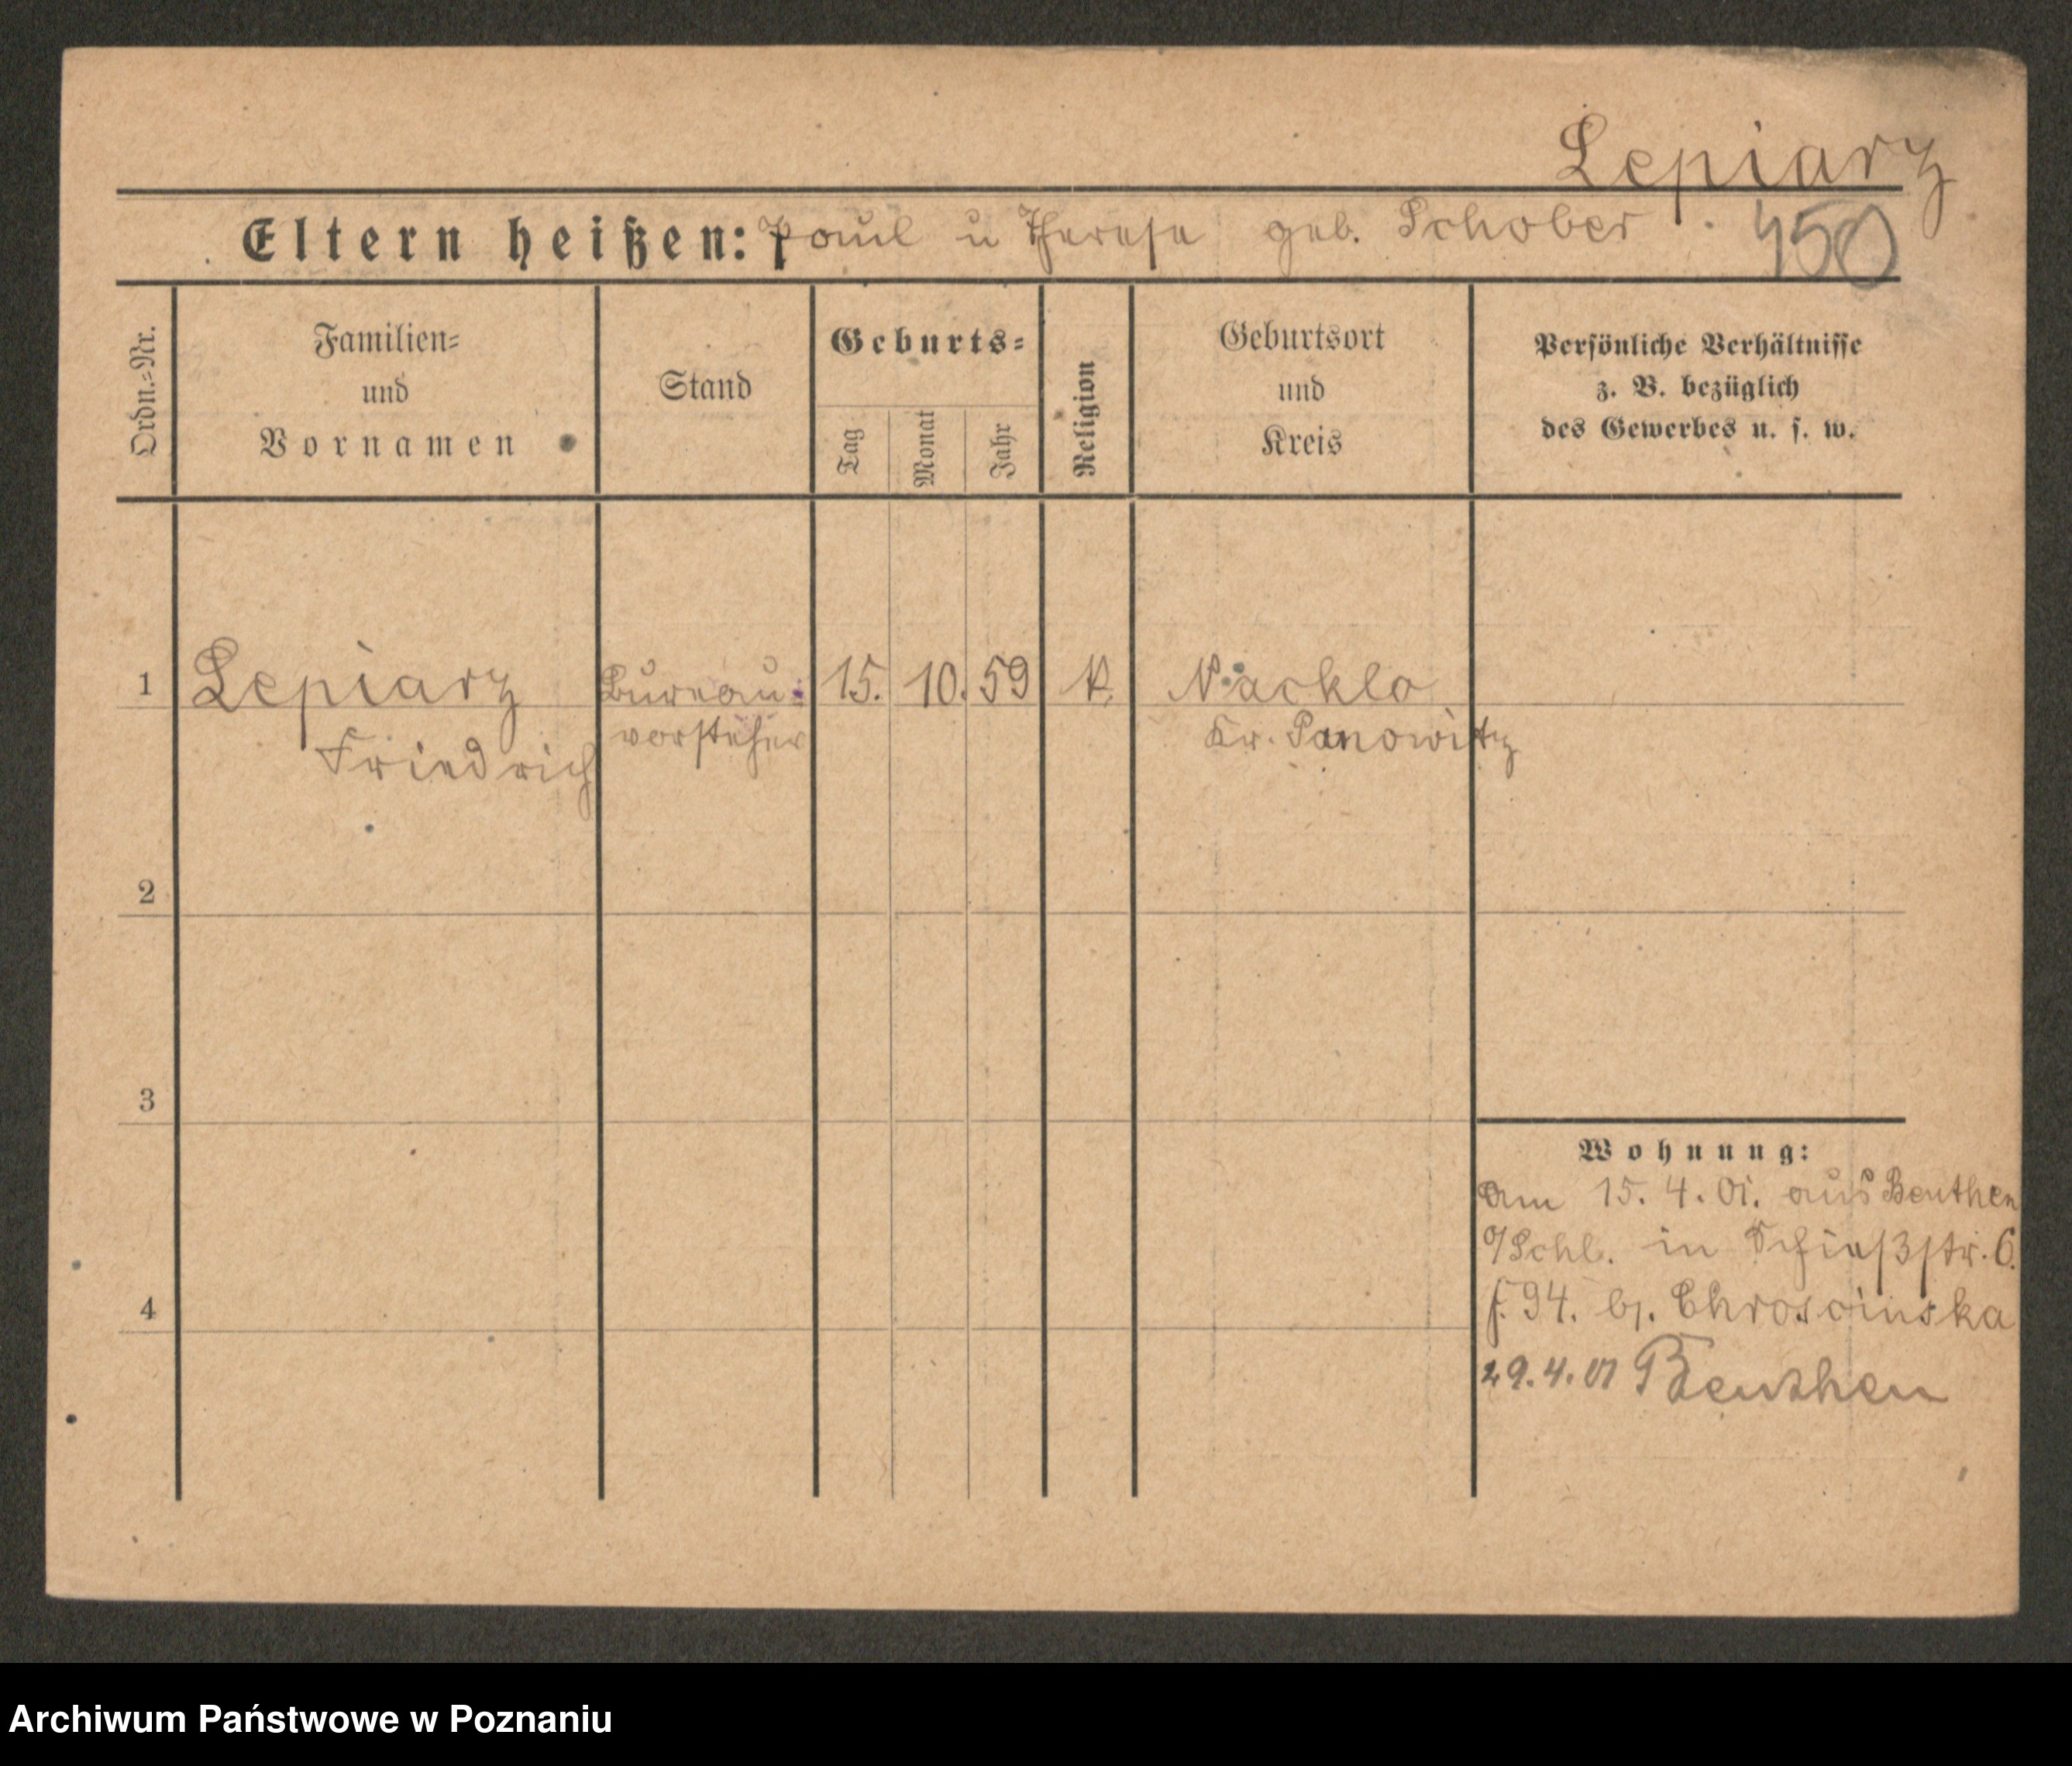 Lepiarz
Eltern heißen: Paul u Therese geb. Schober
450
Ordn.=Nr.
Familien=
und
Vornamen
Stand
Geburts=
Tag
Monat
Jahr
Religion
Geburtsort
und
Kreis
Persönliche Verhältnisse
z. B. bezüglich
des Gewerbes u. s. w.
1 Lepiarz Bureau= 15. 10. 59 K. Nacklo
Friedrich vorsteher Kr. Tanowitz
2
3
4
Wohnung:
am 15. 4. 01. aus Beuthen
O/Schl. in Schießstr. 6.
f. 94. bj. Chroscinska
29.4.01 Beuthen
Archiwum Państwowe w Poznaniu